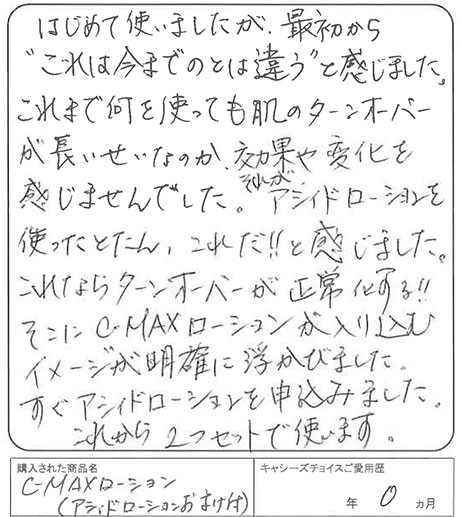 はじめて使いましたが、最初から
"これは今までのとは違う"と感じました。
これまで何を使っても肌のターンオーバー
が長いせいなのか、効果や変化を
感じませんでした。それがアシィドローションを
使ったとたん、これだ!!と感じました。
これならターンオーバーが正常化する!!
そこにC-MAXローションが入り込む
イメージが明確に浮かびました。
すぐアシィドローションを申込みました。
これから2つセットで使います。
購入された商品名
C-MAXローション
(アシィドローションおまけ付)
キャシーズチョイスご愛用歴
年 0 ヵ月